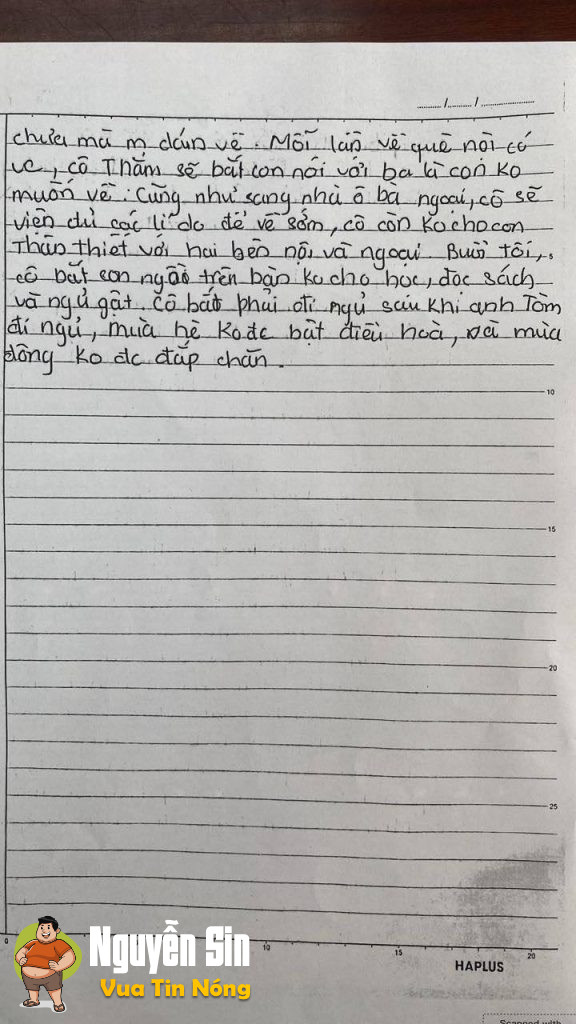 ....../....../............
chưa mà m dám về. Mỗi lần về quê nội có
vc, cô Thắm sẽ bắt con nói với ba là con ko
muốn về. Cũng như sang nhà ô bà ngoại, cô sẽ
viện đủ các lí do để về sớm, cô còn ko cho con
thân thiết với hai bên nội và ngoại. Buổi tối,
cô bắt con ngồi trên bàn ko cho học, đọc sách
và ngủ gật. Cô bắt phải đi ngủ sau khi anh Tôm
đi ngủ, mùa hè ko đc bật điều hoà, và mùa
đông ko đc đắp chăn.
10
15
20
25
0
10
15
20
HAPLUS
Nguyễn Sin
Vua Tin Nóng
Scanned with